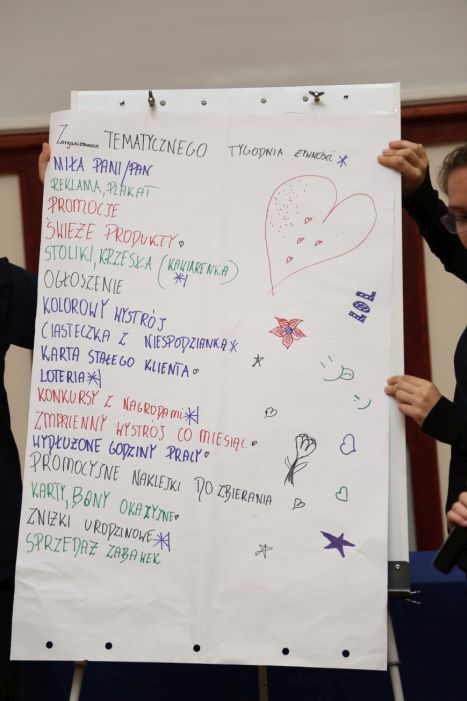 Zorganizowanie TEMATYCZNEGO TYGODNIA ŻYWNOŚCI
MIŁA PANI/PAN
REKLAMA, PLAKAT
PROMOCJE
ŚWIEŻE PRODUKTY
STOLIKI, KRZESŁA (KAWIARENKA)
OGŁOSZENIE
KOLOROWY WYSTRÓJ
CIASTECZKA Z NIESPODZIANKĄ
KARTA STAŁEGO KLIENTA
LOTERIA
KONKURSY Z NAGRODAMI
ZMIENNY WYSTRÓJ CO MIESIĄC
WYDŁUŻONE GODZINY PRACY
PROMOCYJNE NAKLEJKI DO ZBIERANIA
KARTY, BONY OKAZYJNE
ZNIŻKI URODZINOWE
SPRZEDAŻ ZABAWEK
LOL